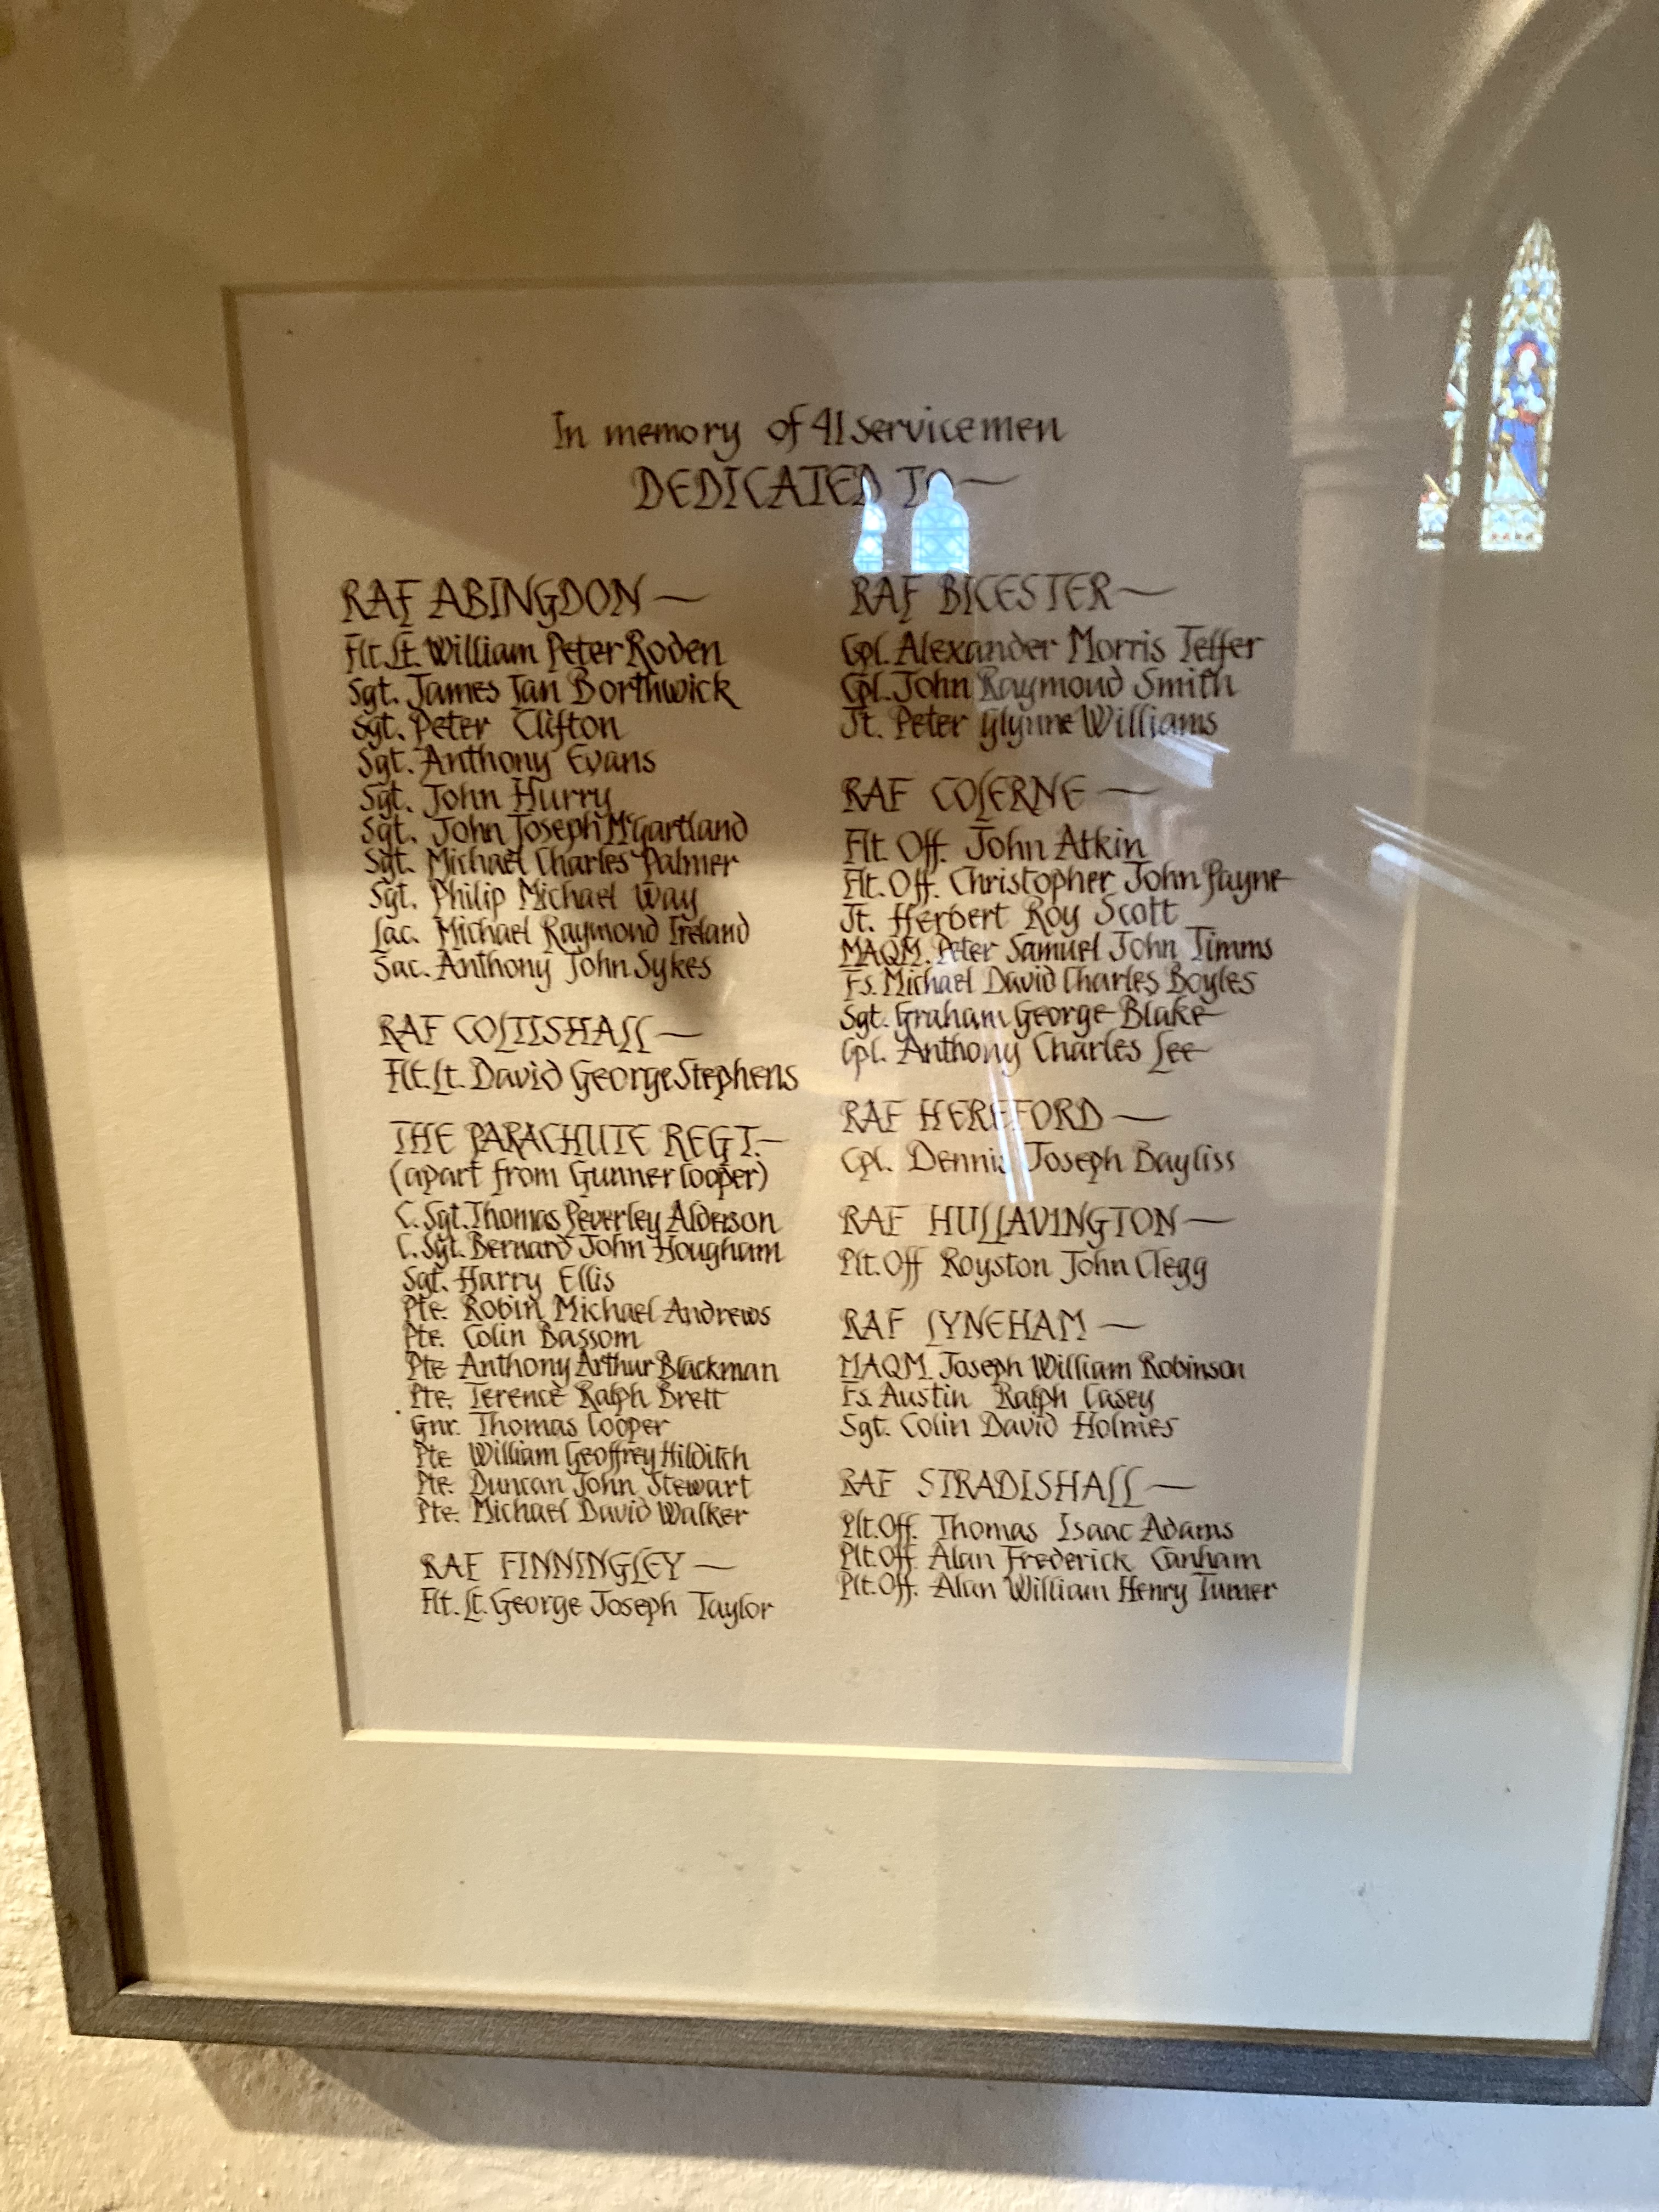 In memory of 41 servicemen
DEDICATED TO —
RAF ABINGDON —
Flt. Lt. William Peter Roden
Sgt. James Ian Borthwick
Sgt. Peter Clifton
Sgt. Anthony Evans
Sgt. John Hurry
Sgt. John Joseph McGartland
Sgt. Michael Charles Palmer
Sgt. Philip Michael Way
Lac. Michael Raymond Ireland
Sac. Anthony John Sykes
RAF COLTISHALL —
Flt. Lt. David George Stephens
THE PARACHUTE REGT. —
(apart from Gunner Cooper)
C. Sgt. Thomas Peverley Alderson
C. Sgt. Bernard John Hougham
Sgt. Harry Ellis
Pte. Robin Michael Andrews
Pte. Colin Bassom
Pte Anthony Arthur Blackman
Pte. Terence Ralph Brett
Gnr. Thomas Cooper
Pte William Geoffrey Hilditch
Pte. Duncan John Stewart
Pte. Michael David Walker
RAF FINNINGLEY —
Flt. Lt. George Joseph Taylor
RAF BICESTER —
Cpl. Alexander Morris Telfer
Cpl. John Raymond Smith
Jt. Peter Glynne Williams
RAF COLERNE —
Flt. Off. John Atkin
Flt. Off. Christopher John Payne
Jt. Herbert Roy Scott
MAQM. Peter Samuel John Timms
Fs. Michael David Charles Boyles
Sgt. Graham George Blake
Cpl. Anthony Charles Lee
RAF HEREFORD —
Cpl. Dennis Joseph Bayliss
RAF HULLAVINGTON —
Plt. Off Royston John Clegg
RAF LYNEHAM —
MAQM. Joseph William Robinson
Fs. Austin Ralph Casey
Sgt. Colin David Holmes
RAF STRADISHALL —
Plt. Off. Thomas Isaac Adams
Plt. Off. Alan Frederick Canham
Plt. Off. Alan William Henry Turner